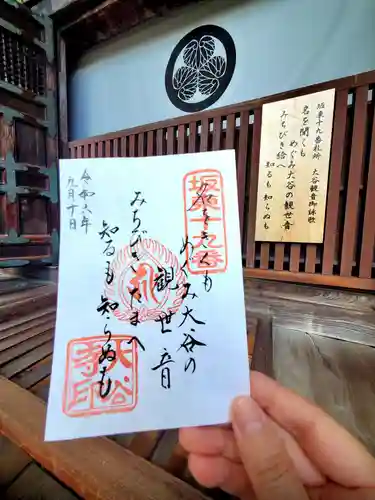 坂東十九番札所
大谷観音御詠歌
名を聞くも
めぐみ大谷の観世音
みちびき給へ
知るも知らぬも
坂東十九番
名をきくも
めぐみ大谷の
観世音
みちびきたまへ
知るも知らぬも
令和六年
九月十日
大谷
寺印